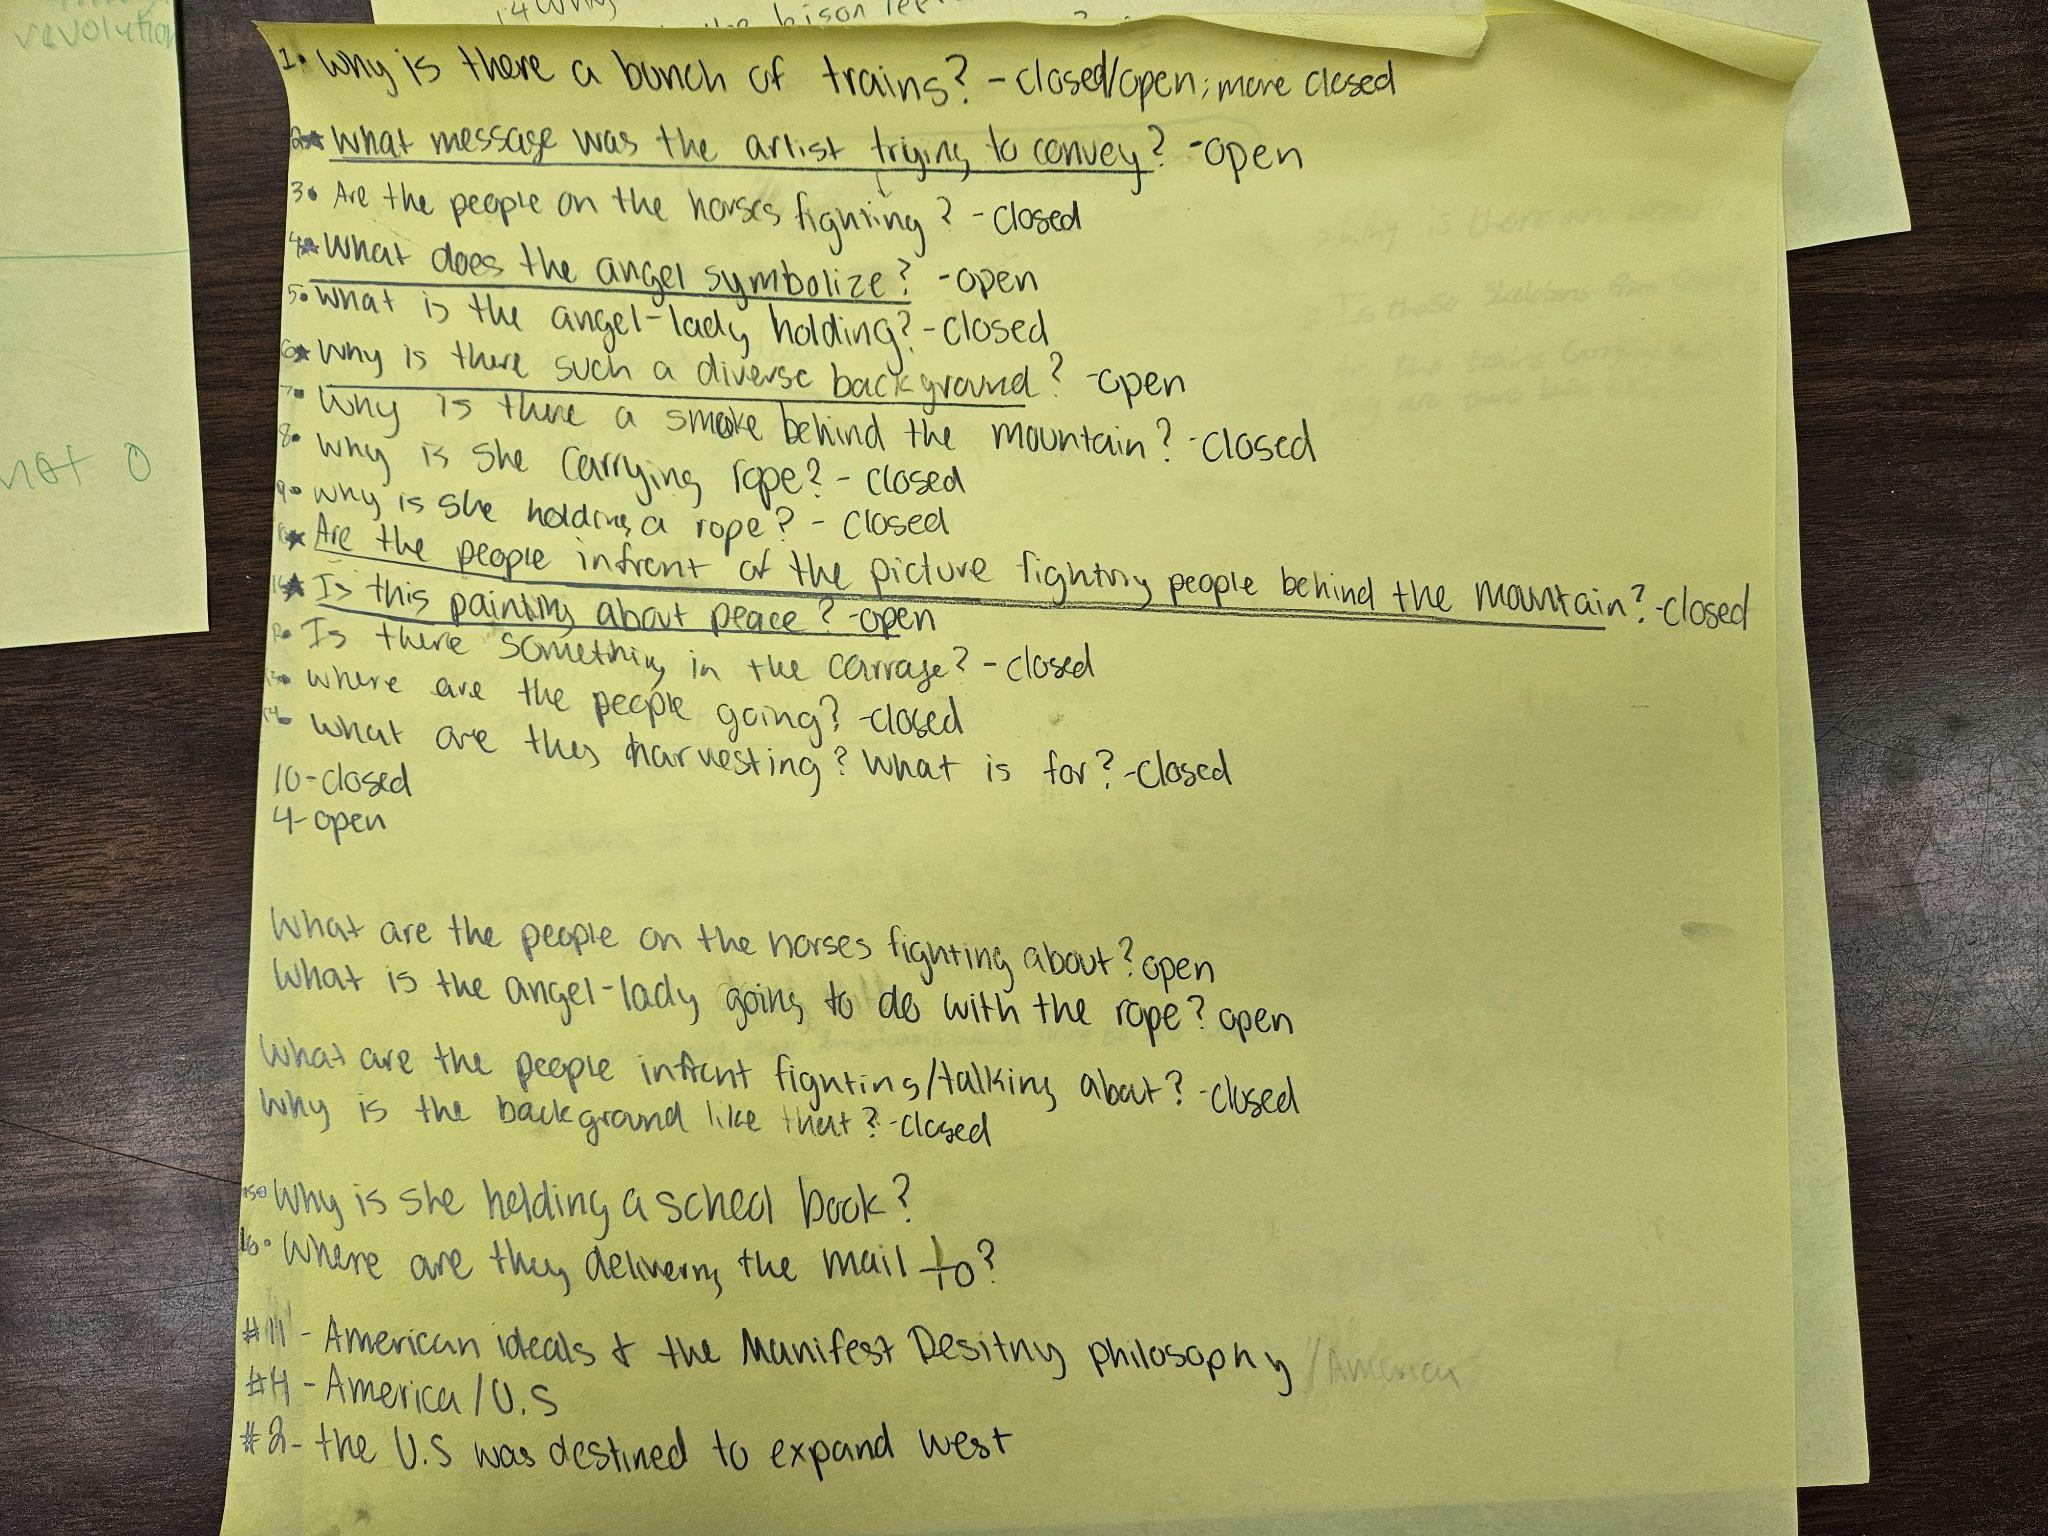 revolution
not 0
14 Why
the bison
1. Why is there a bunch of trains? - closed/open; more closed
2★ What message was the artist trying to convey? -open
3• Are the people on the horses fighting? - closed
4★ What does the angel symbolize? -open
5• What is the angel-lady holding? - closed
6★ Why is there such a diverse background? -open
7• Why is there a smoke behind the mountain? -closed
8• Why is she carrying rope? - closed
9• Why is she holding a rope? - closed
10★ Are the people infront of the picture fighting people behind the mountain? -closed
11★ Is this painting about peace? -open
12• Is there something in the carrage? - closed
13• Where are the people going? -closed
14• What are they harvesting? What is for? -closed
10-closed
4-open
What are the people on the horses fighting about? open
What is the angel-lady going to do with the rope? open
What are the people infront fighting/talking about? -closed
Why is the background like that? -closed
15• Why is she holding a school book?
16• Where are they delivering the mail to?
#11 - American ideals & the Manifest Desitny philosophy /America
#4 - America/U.S
#2- the U.S was destined to expand west